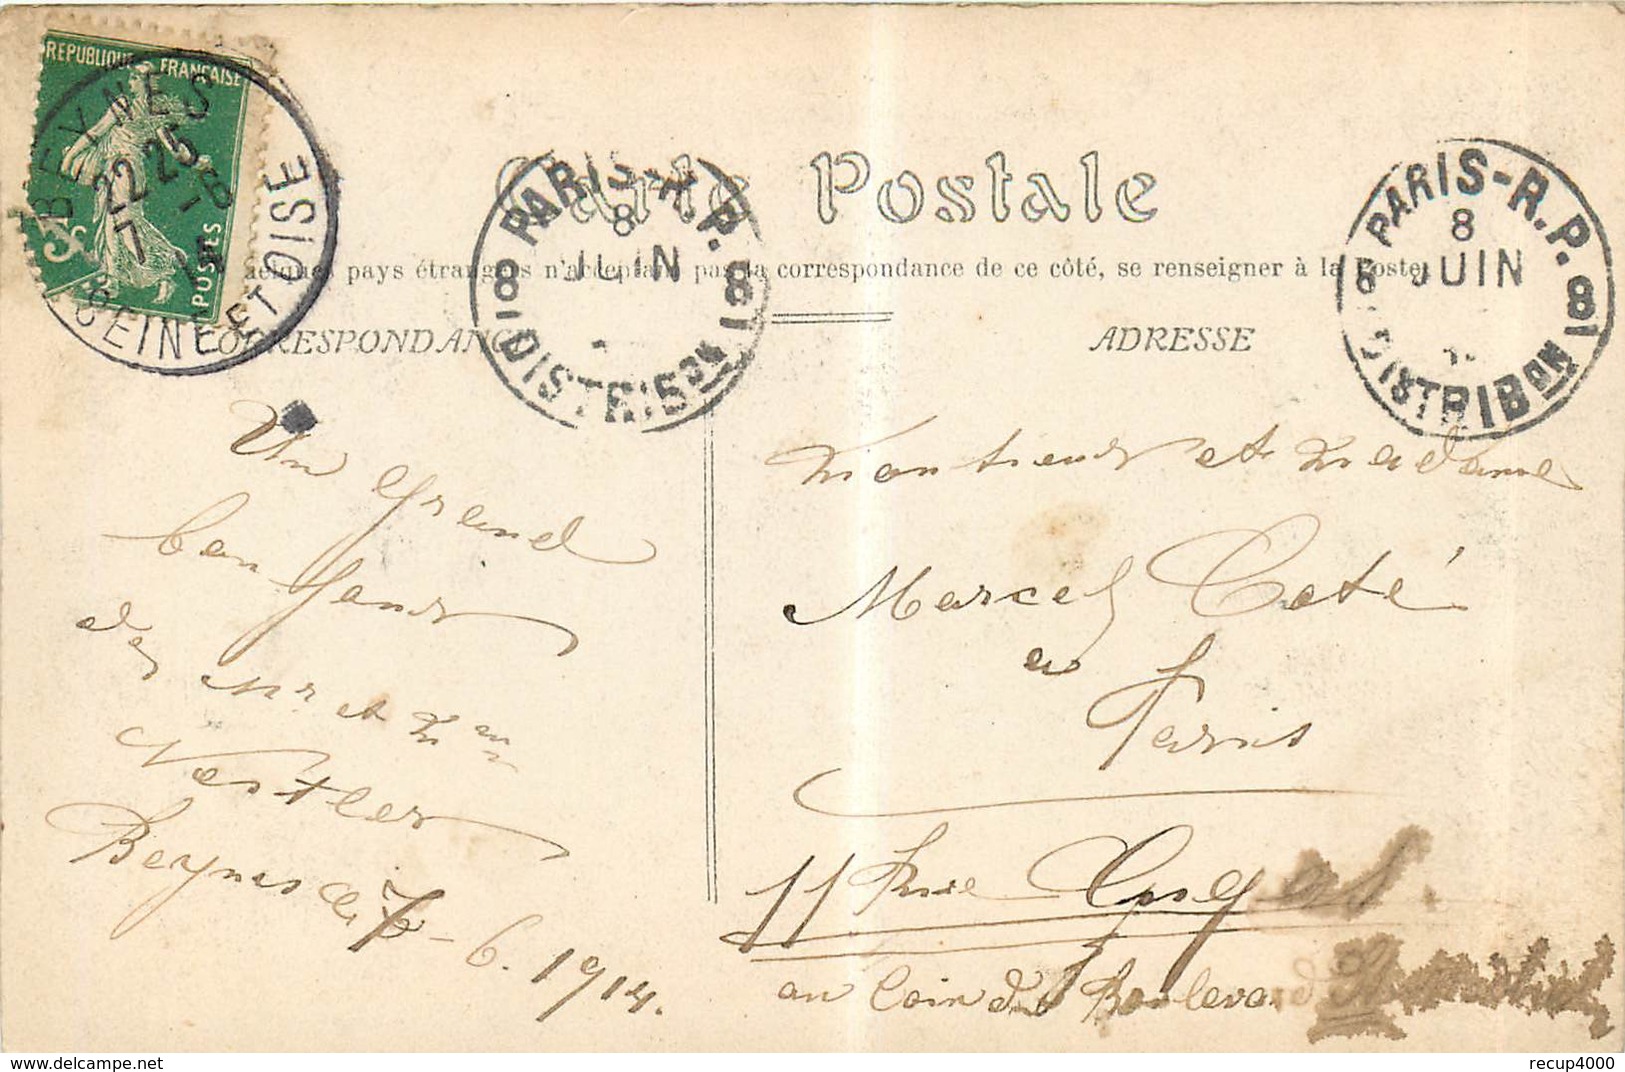 REPUBLIQUE FRANÇAISE
POSTES
5c
BEYNES
22 25
7 -6
14
SEINE ET OISE
PARIS-R.P. 81
8
JUIN
8 DISTRIBON
PARIS-R.P. 81
8
JUIN
8 DISTRIBON
Carte Postale
quelques pays étrangers n'acceptant pas la correspondance de ce côté, se renseigner à la Poste)
CORRESPONDANCE
ADRESSE
Un Grand
bon jour
des Mr et Mm
Nestler
Beynes le 7-6. 1914.
Monsieur et Madame
Marcel Coté
a
Paris
11 Rue
au Coin du Boulevard St
recup4000